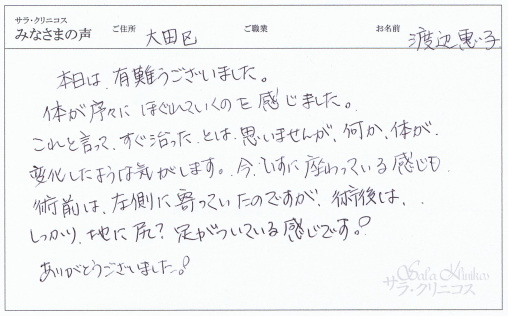 サラ・クリニコス
みなさまの声 ご住所 大田区 ご職業 お名前 渡辺恵子
本日は、有難うございました。
体が序々にほぐれていくのを感じました。
これと言って、すぐ治ったとは思いませんが、何か、体が
変化したような気がします。今、いすに座わっている感じも
術前は、左側に寄っていたのですが、術後は、
しっかり、地に尻?足がついている感じです。
ありがとうございました。
Sala Klinikos
サラ・クリニコス